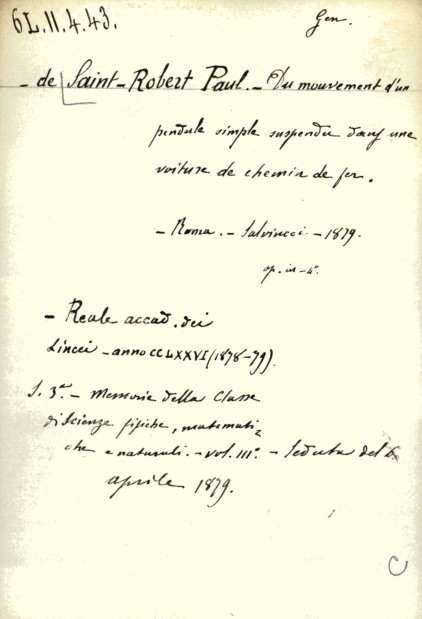 6L.II.4.43.
Gen.
- de Saint-Robert Paul. - Du mouvement d'un
pendule simple suspendu dans une
voiture de chemin de fer.
- Roma. - Salviucci - 1879.
op. in-4°.
- Reale accad. dei
Lincei - anno CCLXXVI (1878-79).
S. 3ª. - Memorie della Classe
di Scienze fisiche, matemati=
che e naturali. - vol. III°. - Seduta del 6
aprile 1879.
C